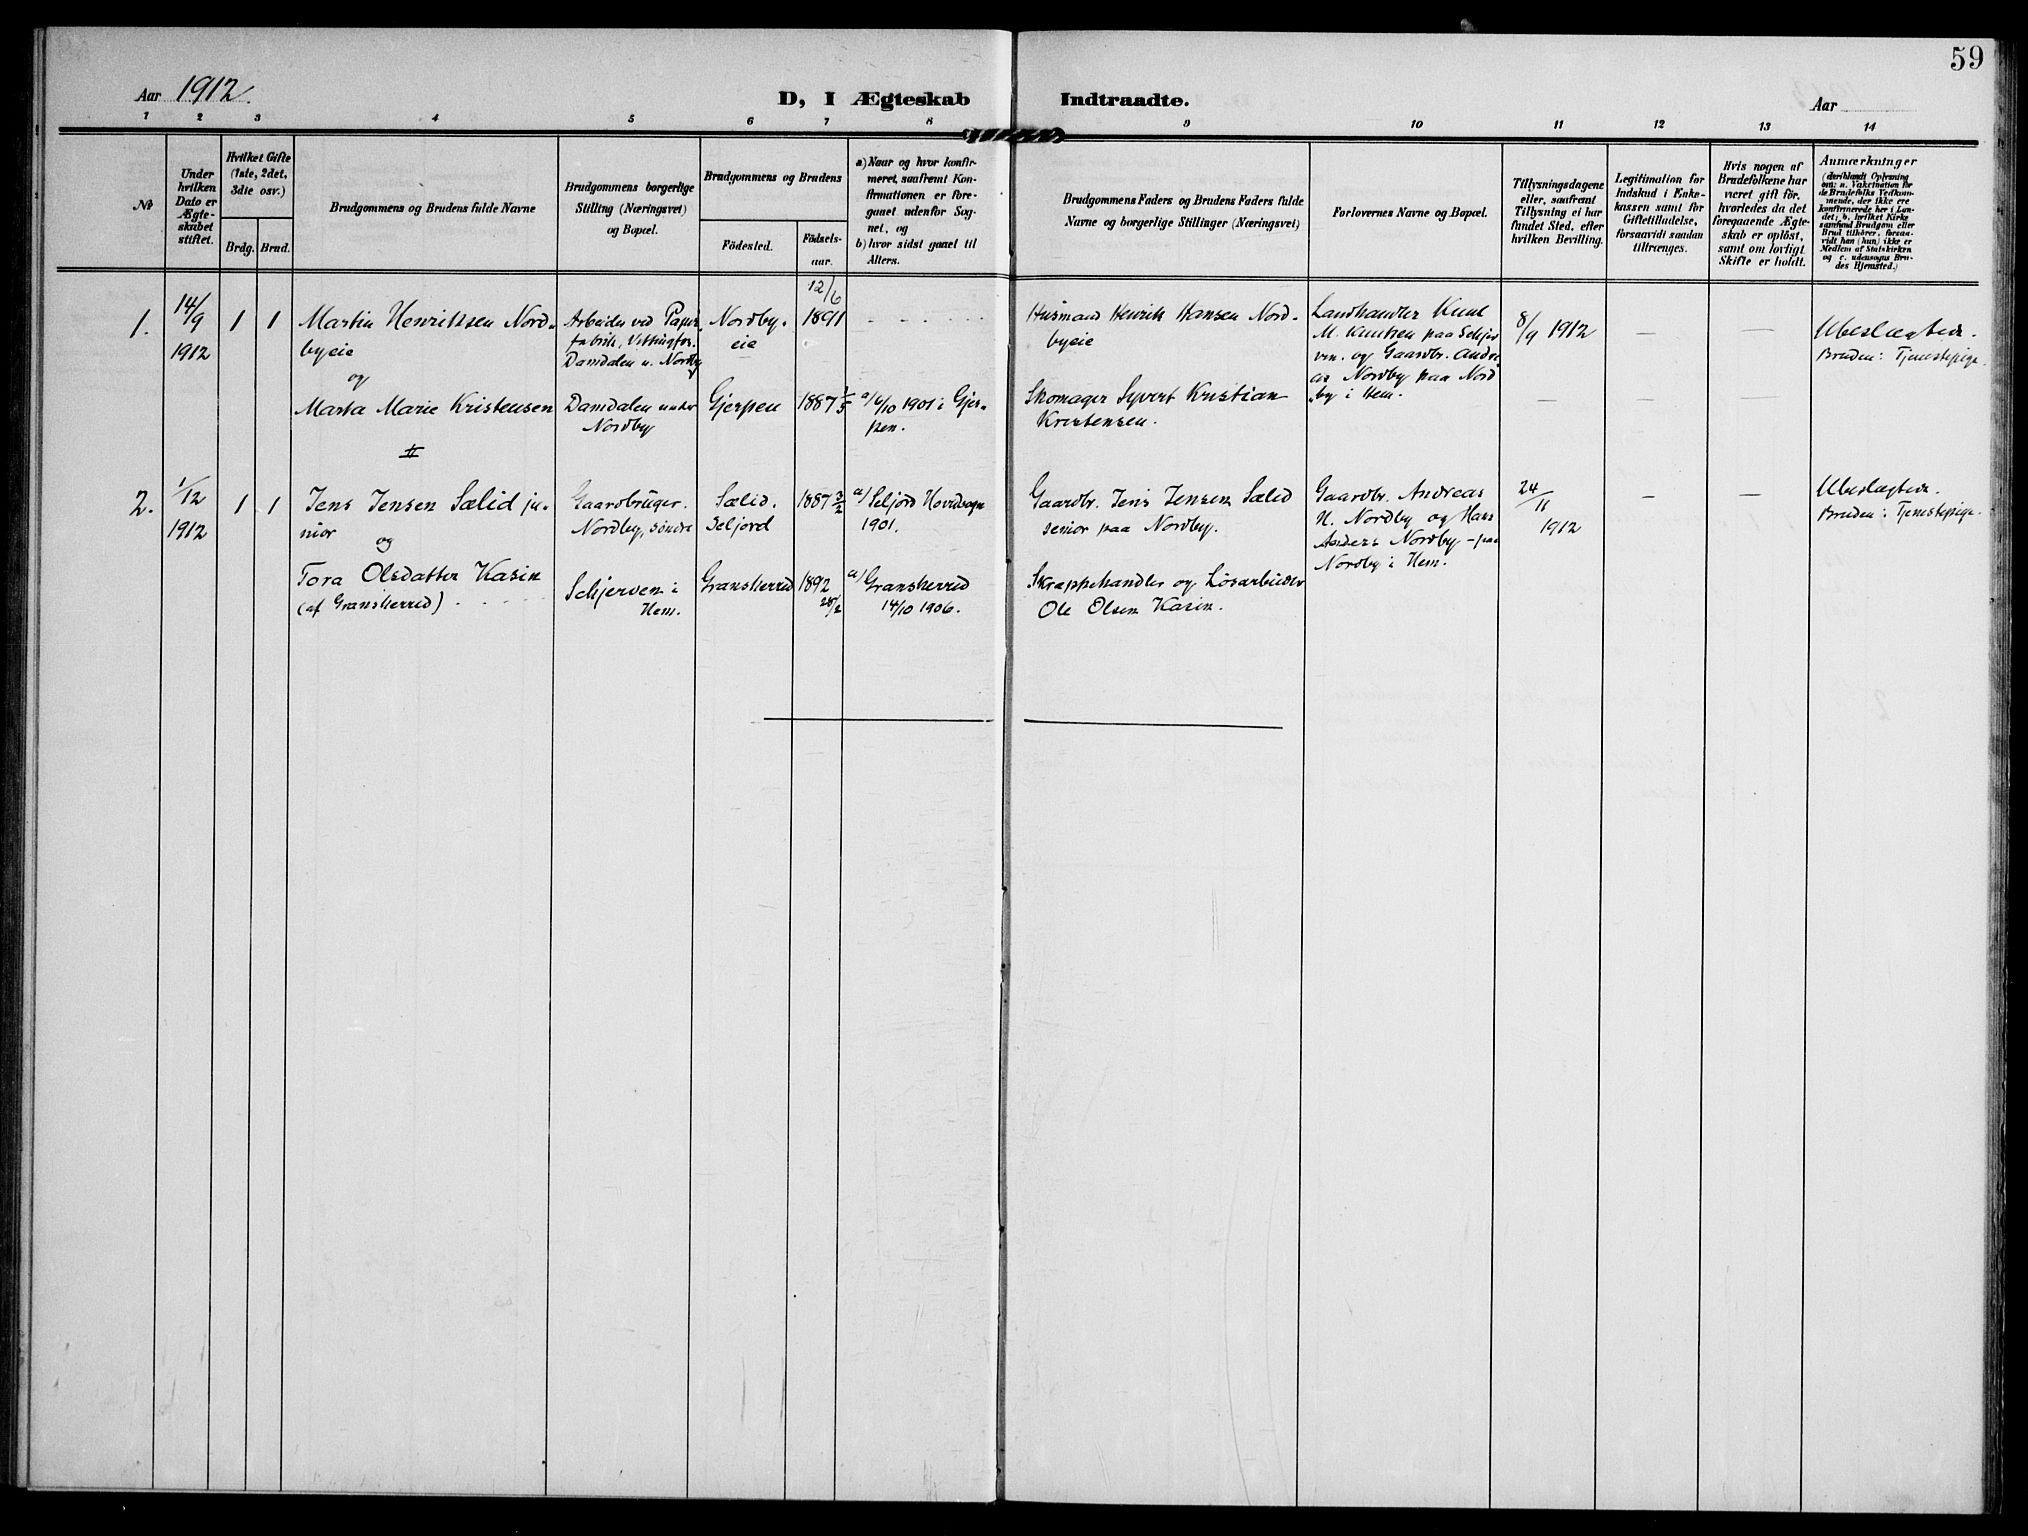 59
Aar 1912.
D, I Ægteskab Indtraadte.
Aar
1 2 3 4 5 6 7 8 9 10 11 12 13 14
No
Under
hvilken
Dato er
Ægte-
skabet
stiftet.
Hvilket Gifte
(1ste, 2det,
3die osv.)
Brdg. Brud.
Brudgommens og Brudens fulde Navne
Brudgommens borgerlige
Stilling (Næringsvei)
og Bopæl.
Brudgommens og Brudens
Fødested.
Fødsels-
aar.
a) Naar og hvor konfir-
meret, saafremt Kon-
firmationen er fore-
gaaet udenfor Sog-
net, og
b) hvor sidst gaaet til
Alters.
Brudgommens Faders og Brudens Faders fulde
Navne og borgerlige Stillinger (Næringsvei)
Forlovernes Navne og Bopæl.
Tillysningsdagene
eller, saafremt
Tillysning ei har
fundet Sted, efter
hvilken Bevilling.
Legitimation for
Indskud i Enke-
kassen samt for
Giftetilladelse,
forsaavidt saadan
tiltrænges.
Hvis nogen af
Brudefolkene har
været gift før,
hvorledes da det
foregaaende Ægte-
skab er opløst,
samt om lovligt
Skifte er holdt.
Anmærkninger
(deriblandt Oplysning
om: a. Vakcination for
de Brudefolks Vedkom-
mende, der ikke ere
konfirmerede her i Lan-
det; b. hvilket Kirke-
samfund Brudgom eller
Brud tilhører, forsaa-
vidt han (hun) ikke er
Medlem af Statskirken
og c. udensogns Bru-
des Hjemsted.)
1.
14/9
1912
1 1
Martin Henriksen Nord-
byeie
og
Marta Marie Kristensen
Arbeider ved Papir-
fabrik, Vittingfos.
Damdalen u. Nordby
Damdalen under
Nordby
Nordby-
eie
Gjerpen
12/6
1891
1887 1/5
a/ 6/10 1901 i Gjer-
pen.
Husmand Henrik Hansen Nord-
byeie
Skomager Syvert Kristian
Kristensen.
Landhandler Knut
M. Knutsen paa Schjer-
ven. og Gaardbr. Andre-
as Nordby paa Nord
by i Hem.
8/9 1912
Ubeslægtede.
Bruden: Tjenestepige
2.
1/12
1912
1 1
Jens Jensen Sælid ju-
nior
og
Tora Olsdatter Kasin
(af Gransherred)
Gaardbruger.
Nordby, søndre
Schjerven i
Hem.
Sælid.
Seljord
Gransherred
1887 3/2
1892
28/2
a/ Seljord Hovedsogn
1901.
a/ Gransherred
14/10 1906.
Gaardbr. Jens Jensen Sælid
senior paa Nordby.
Skræppehandler og Løsarbeider
Ole Olsen Kasin.
Gaardbr. Andreas
H. Nordby og Hans
Anders Nordby - paa
Nordby i Hem.
24/11
1912
Ubeslægtede.
Bruden: Tjenestepige.